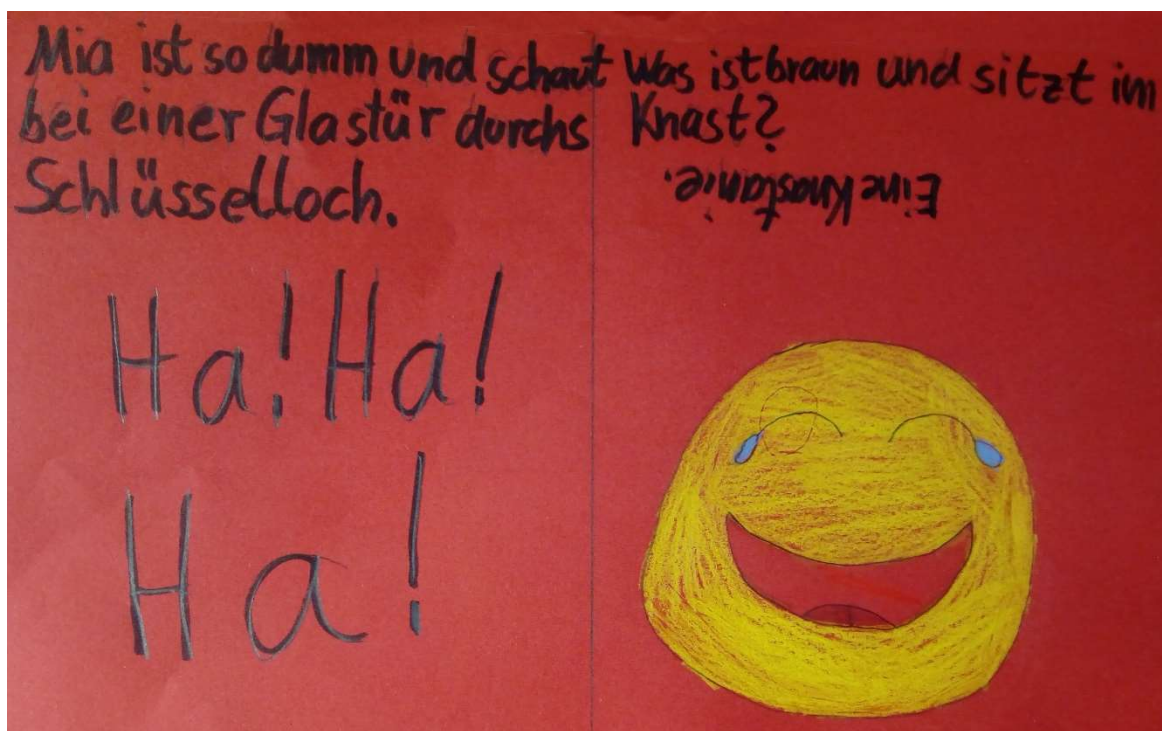 Mia ist so dumm und schaut
bei einer Glastür durchs
Schlüsselloch.
Ha! Ha!
Ha!
Was ist braun und sitzt im
Knast?
Eine Knastanie.